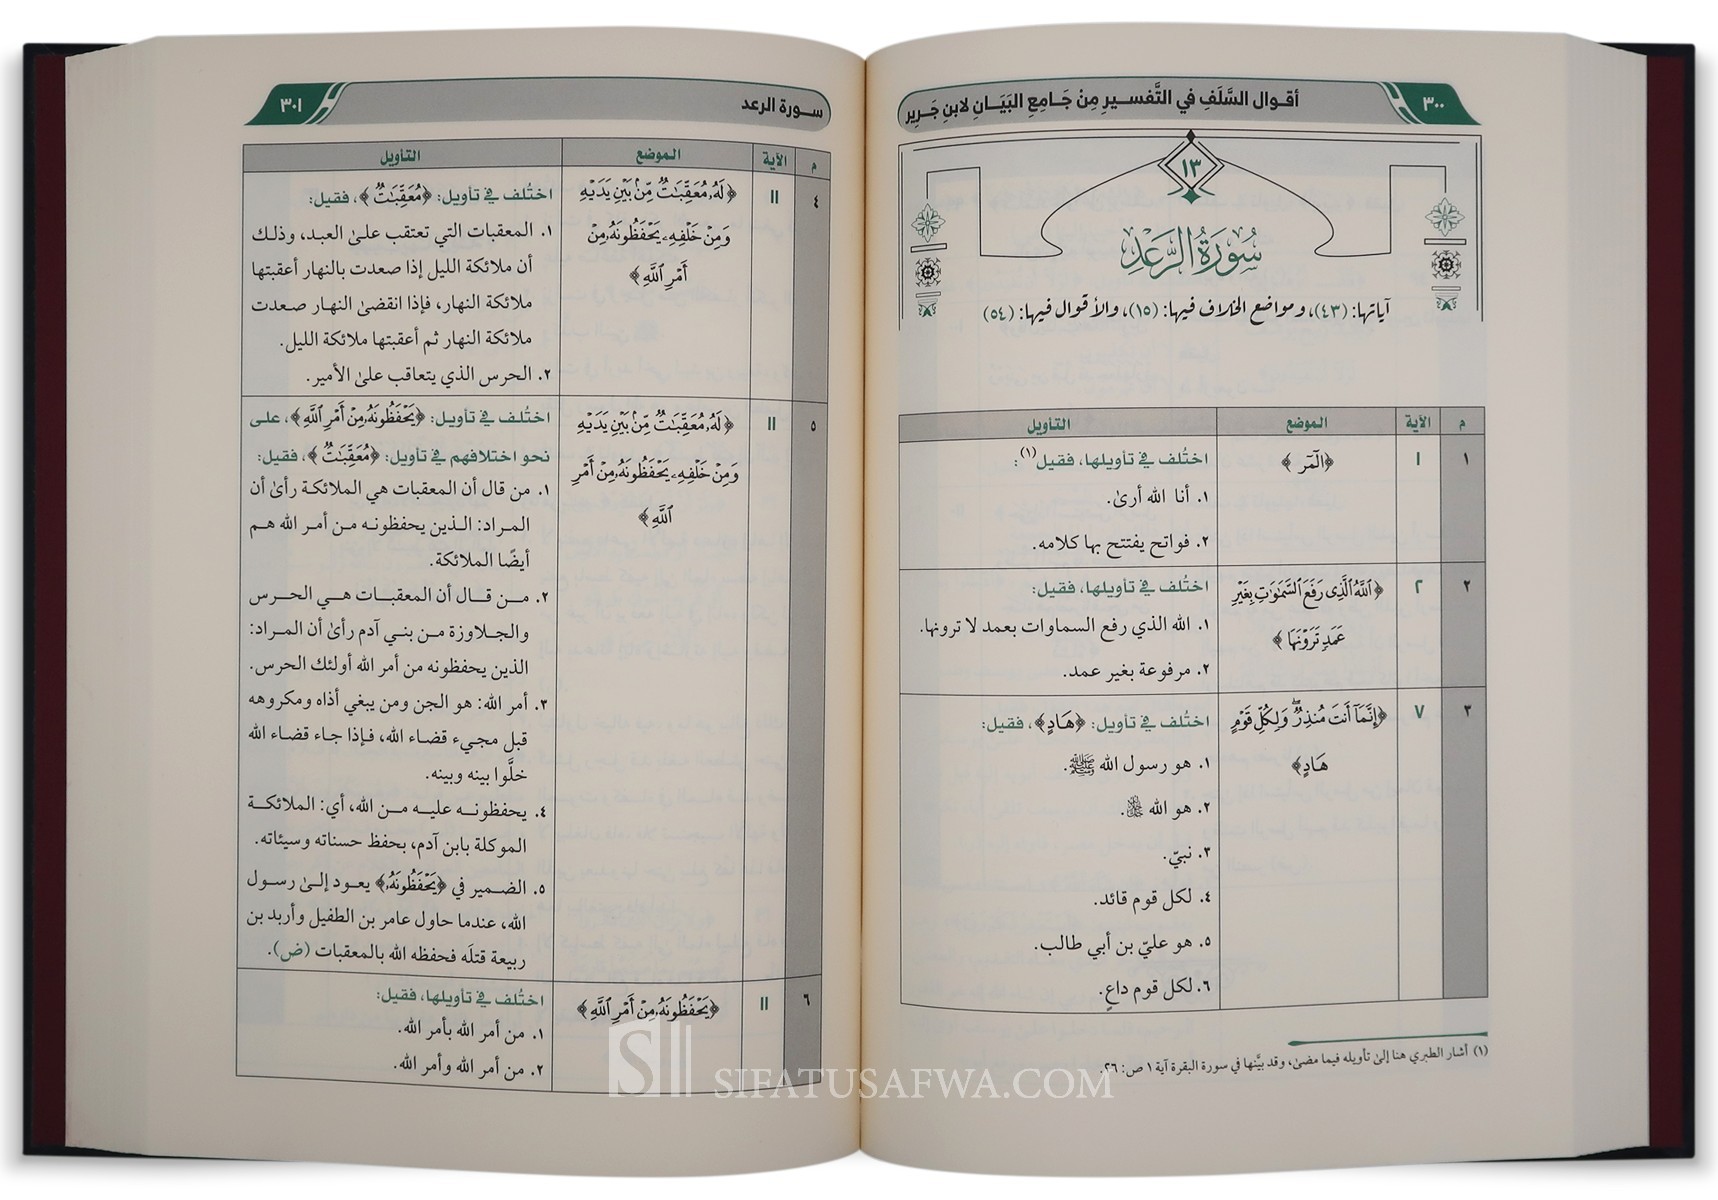 ٣٠٠
أقوال السَّلَفِ في التَّفسيرِ مِنْ جَامِعِ البَيَانِ لابنِ جَرِيرٍ
١٣
سُورَةُ الرَّعْدِ
آياتها: (٤٣)، ومواضع الخلاف فيها: (١٥)، والأقوال فيها: (٥٤)
م الآية الموضع التأويل
١ ١ ﴿الٓمٓر﴾ اختُلف في تأويلها، فقيل(١):
١. أنا الله أرىٰ.
٢. فواتح يفتتح بها كلامه.
٢ ٢ ﴿ٱللَّهُ ٱلَّذِى رَفَعَ ٱلسَّمَٰوَٰتِ بِغَيْرِ اختُلف في تأويلها، فقيل:
عَمَدٍ تَرَوْنَهَا﴾ ١. الله الذي رفع السماوات بعمد لا ترونها.
٢. مرفوعة بغير عمد.
٣ ٧ ﴿إِنَّمَآ أَنتَ مُنذِرٌۖ وَلِكُلِّ قَوْمٍ اختُلف في تأويل: ﴿هَادٍ﴾، فقيل:
هَادٍ﴾ ١. هو رسول الله ﷺ.
٢. هو الله ﷻ.
٣. نبيّ.
٤. لكل قوم قائد.
٥. هو عليّ بن أبي طالب.
٦. لكل قوم داعٍ.
(١) أشار الطبري هنا إلىٰ تأويله فيما مضىٰ، وقد بيَّنها في سورة البقرة آية ١ ص: ٢٦.
سورة الرعد
٣٠١
م الآية الموضع التأويل
٤ ١١ ﴿لَهُۥ مُعَقِّبَٰتٌ مِّنۢ بَيْنِ يَدَيْهِ اختُلف في تأويل: ﴿مُعَقِّبَٰتٌ﴾، فقيل:
وَمِنْ خَلْفِهِۦ يَحْفَظُونَهُۥ مِنْ ١. المعقبات التي تعتقب علىٰ العبد، وذلك
أَمْرِ ٱللَّهِ﴾ أن ملائكة الليل إذا صعدت بالنهار أعقبتها
ملائكة النهار، فإذا انقضىٰ النهار صعدت
ملائكة النهار ثم أعقبتها ملائكة الليل.
٢. الحرس الذي يتعاقب علىٰ الأمير.
٥ ١١ ﴿لَهُۥ مُعَقِّبَٰتٌ مِّنۢ بَيْنِ يَدَيْهِ اختُلف في تأويل: ﴿يَحْفَظُونَهُۥ مِنْ أَمْرِ ٱللَّهِ﴾، على
وَمِنْ خَلْفِهِۦ يَحْفَظُونَهُۥ مِنْ أَمْرِ نحو اختلافهم في تأويل: ﴿مُعَقِّبَٰتٌ﴾، فقيل:
ٱللَّهِ﴾ ١. من قال أن المعقبات هي الملائكة رأىٰ أن
المراد: الذين يحفظونه من أمر الله هم
أيضًا الملائكة.
٢. من قال أن المعقبات هي الحرس
والجلاوزة من بني آدم رأىٰ أن المراد:
الذين يحفظونه من أمر الله أولئك الحرس.
٣. أمر الله: هو الجن ومن يبغي أذاه ومكروهه
قبل مجيء قضاء الله، فإذا جاء قضاء الله
خلَّوا بينه وبينه.
٤. يحفظونه عليه من الله، أي: الملائكة
الموكلة بابن آدم، بحفظ حسناته وسيئاته.
٥. الضمير في ﴿يَحْفَظُونَهُۥ﴾ يعود إلىٰ رسول
الله، عندما حاول عامر بن الطفيل وأربد بن
ربيعة قتلَه فحفظه الله بالمعقبات (ض).
٦ ١١ ﴿يَحْفَظُونَهُۥ مِنْ أَمْرِ ٱللَّهِ﴾ اختُلف في تأويلها، فقيل:
١. من أمر الله بأمر الله.
٢. من أمر الله وأمر الله.
SIFATUSAFWA.COM